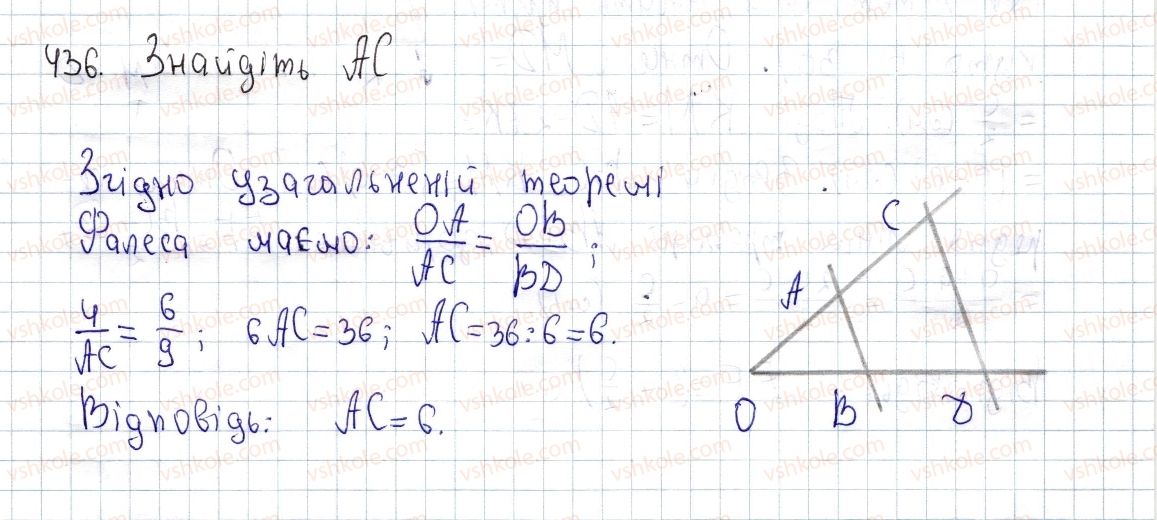 436. Знайдіть AC
Згідно узагальненій теоремі
Фалеса маємо: OA/AC = OB/BD;
4/AC = 6/9; 6AC = 36; AC = 36 : 6 = 6.
Відповідь: AC = 6.
C
A
O B D
vshkole.com